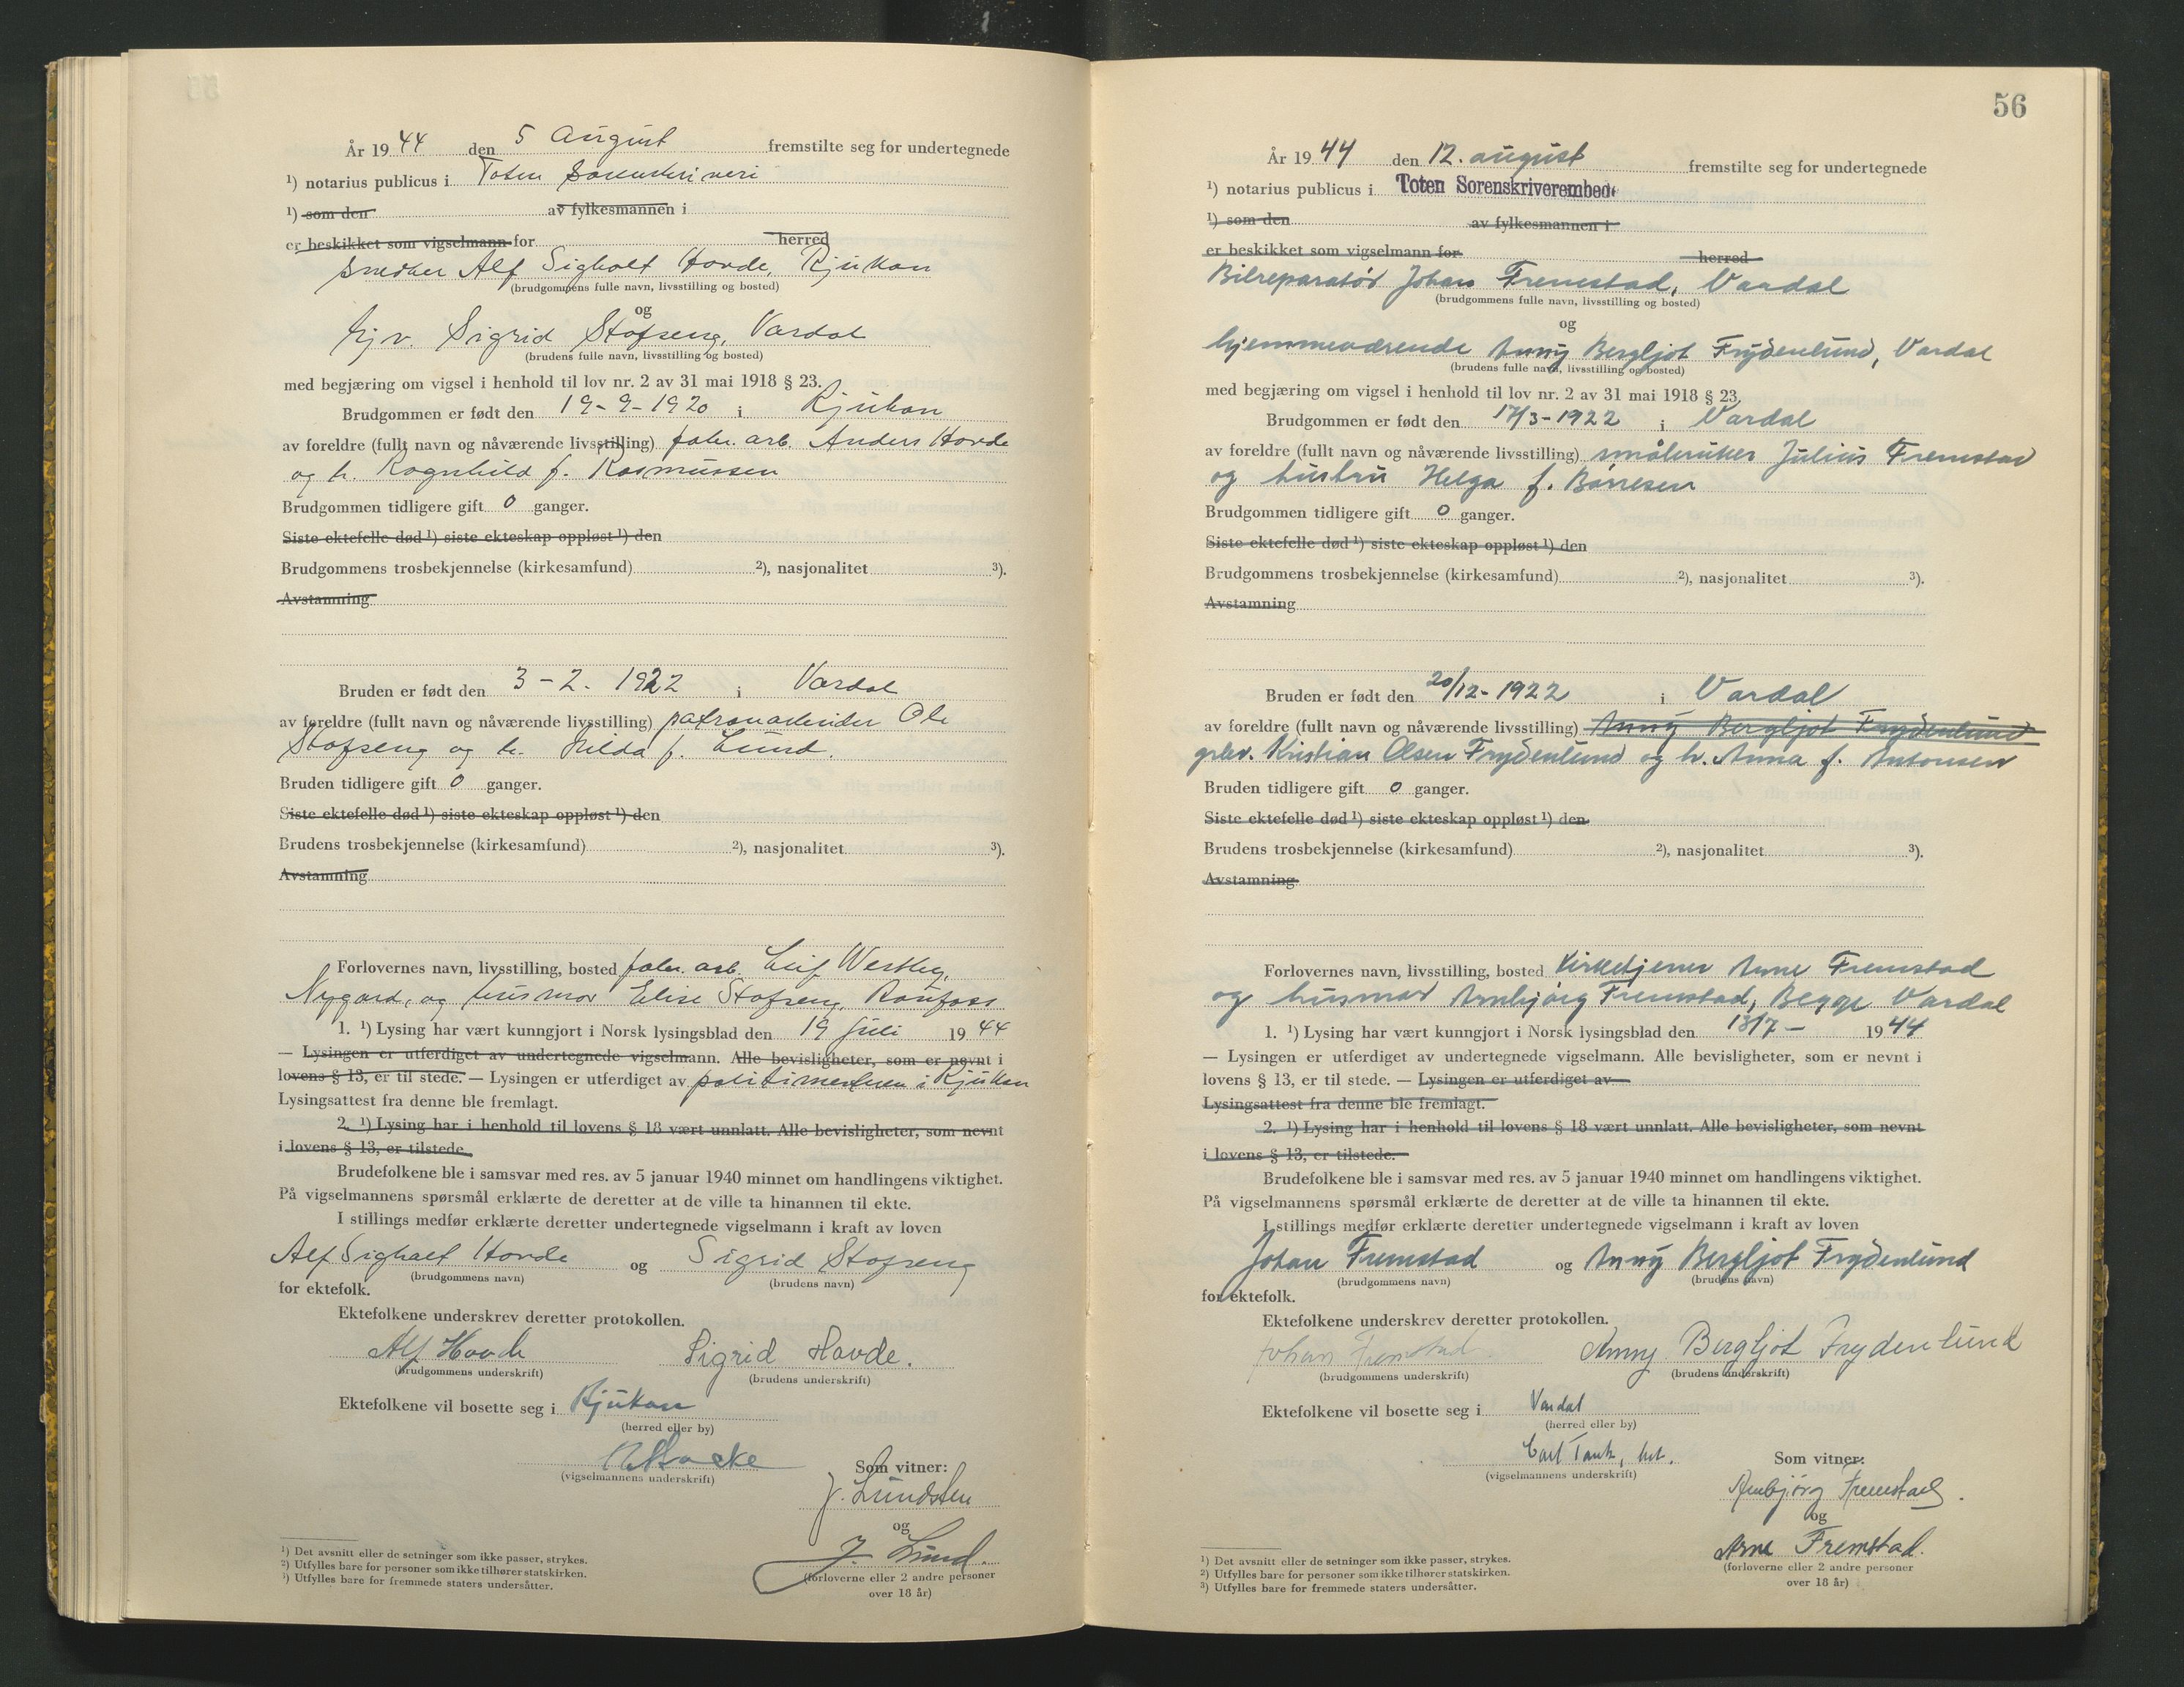 År 1944 den 5 August fremstilte seg for undertegnede
¹) notarius publicus i Toten Sorenskriveri
¹) som den av fylkesmannen i
er beskikket som vigselmann for herred
Snedker Alf Sigholt Hovde, Rjukan
(brudgommens fulle navn, livsstilling og bosted)
og
hjv. Sigrid Stofseng, Vardal
(brudens fulle navn, livsstilling og bosted)
med begjæring om vigsel i henhold til lov nr. 2 av 31 mai 1918 § 23.
Brudgommen er født den 19-9-1920 i Rjukan
av foreldre (fullt navn og nåværende livsstilling) fabr. arb. Anders Hovde
og h. Ragnhild f. Rasmussen
Brudgommen tidligere gift 0 ganger.
Siste ektefelle død ¹) siste ekteskap oppløst ¹) den
Brudgommens trosbekjennelse (kirkesamfund) ²), nasjonalitet ³).
Avstamning
Bruden er født den 3-2-1922 i Vardal
av foreldre (fullt navn og nåværende livsstilling) patronarbeider Ole
Stofseng og h. Hilda f. Lund.
Bruden tidligere gift 0 ganger.
Siste ektefelle død ¹) siste ekteskap oppløst ¹) den
Brudens trosbekjennelse (kirkesamfund) ²), nasjonalitet ³).
Avstamning
Forlovernes navn, livsstilling, bosted fabr. arb. Leif Westby,
Nygard, og husmor Elise Stofseng, Raufoss
1. ¹) Lysing har vært kunngjort i Norsk lysingsblad den 19 juli 1944
— Lysingen er utferdiget av undertegnede vigselmann. Alle bevisligheter, som er nevnt i
lovens § 13, er til stede. — Lysingen er utferdiget av politimesteren i Rjukan
Lysingsattest fra denne ble fremlagt.
2. ¹) Lysing har i henhold til lovens § 18 vært unnlatt. Alle bevisligheter, som nevnt
i lovens § 13, er tilstede.
Brudefolkene ble i samsvar med res. av 5 januar 1940 minnet om handlingens viktighet.
På vigselmannens spørsmål erklærte de deretter at de ville ta hinannen til ekte.
I stillings medfør erklærte deretter undertegnede vigselmann i kraft av loven
Alf Sighalt Hovde og Sigrid Stofseng
(brudgommens navn) (brudens navn)
for ektefolk.
Ektefolkene underskrev deretter protokollen.
Alf Hovde Sigrid Hovde.
(brudgommens underskrift) (brudens underskrift)
Ektefolkene vil bosette seg i Rjukan
(herred eller by)
(vigselmannens underskrift) Som vitner:
J. Lundsten
og
J. Lund.
(forloverne eller 2 andre personer
over 18 år)
¹) Det avsnitt eller de setninger som ikke passer, strykes.
²) Utfylles bare for personer som ikke tilhører statskirken.
³) Utfylles bare for fremmede staters undersåtter.
56
År 1944 den 12. august fremstilte seg for undertegnede
¹) notarius publicus i Toten Sorenskriverembede
¹) som den av fylkesmannen i
er beskikket som vigselmann for herred
Bilreparatør Johan Fremstad, Vardal
(brudgommens fulle navn, livsstilling og bosted)
og
hjemmeværende Anny Bergljot Frydenlund, Vardal
(brudens fulle navn, livsstilling og bosted)
med begjæring om vigsel i henhold til lov nr. 2 av 31 mai 1918 § 23.
Brudgommen er født den 17/3-1922 i Vardal
av foreldre (fullt navn og nåværende livsstilling) småbruker Julius Fremstad
og hustru Helga f. Børresen
Brudgommen tidligere gift 0 ganger.
Siste ektefelle død ¹) siste ekteskap oppløst ¹) den
Brudgommens trosbekjennelse (kirkesamfund) ²), nasjonalitet ³).
Avstamning
Bruden er født den 20/12-1922 i Vardal
av foreldre (fullt navn og nåværende livsstilling) Anny Bergljot Frydenlund
Kristian Olsen Frydenlund og h. Anna f. Antonsen
Bruden tidligere gift 0 ganger.
Siste ektefelle død ¹) siste ekteskap oppløst ¹) den
Brudens trosbekjennelse (kirkesamfund) ²), nasjonalitet ³).
Avstamning
Forlovernes navn, livsstilling, bosted Kirketjener Arne Fremstad
og husmor Annbjørg Fremstad, Begge Vardal
1. ¹) Lysing har vært kunngjort i Norsk lysingsblad den 18/7 - 1944
— Lysingen er utferdiget av undertegnede vigselmann. Alle bevisligheter, som er nevnt i
lovens § 13, er til stede. — Lysingen er utferdiget av
Lysingsattest fra denne ble fremlagt.
2. ¹) Lysing har i henhold til lovens § 18 vært unnlatt. Alle bevisligheter, som nevnt
i lovens § 13, er tilstede.
Brudefolkene ble i samsvar med res. av 5 januar 1940 minnet om handlingens viktighet.
På vigselmannens spørsmål erklærte de deretter at de ville ta hinannen til ekte.
I stillings medfør erklærte deretter undertegnede vigselmann i kraft av loven
Johan Fremstad og Anny Bergljot Frydenlund
(brudgommens navn) (brudens navn)
for ektefolk.
Ektefolkene underskrev deretter protokollen.
Johan Fremstad Anny Bergljot Frydenlund
(brudgommens underskrift) (brudens underskrift)
Ektefolkene vil bosette seg i Vardal
(herred eller by)
Carl Tank, kst.
(vigselmannens underskrift) Som vitner:
Annbjörg Fremstad.
og
Arne Fremstad.
(forloverne eller 2 andre personer
over 18 år)
¹) Det avsnitt eller de setninger som ikke passer, strykes.
²) Utfylles bare for personer som ikke tilhører statskirken.
³) Utfylles bare for fremmede staters undersåtter.